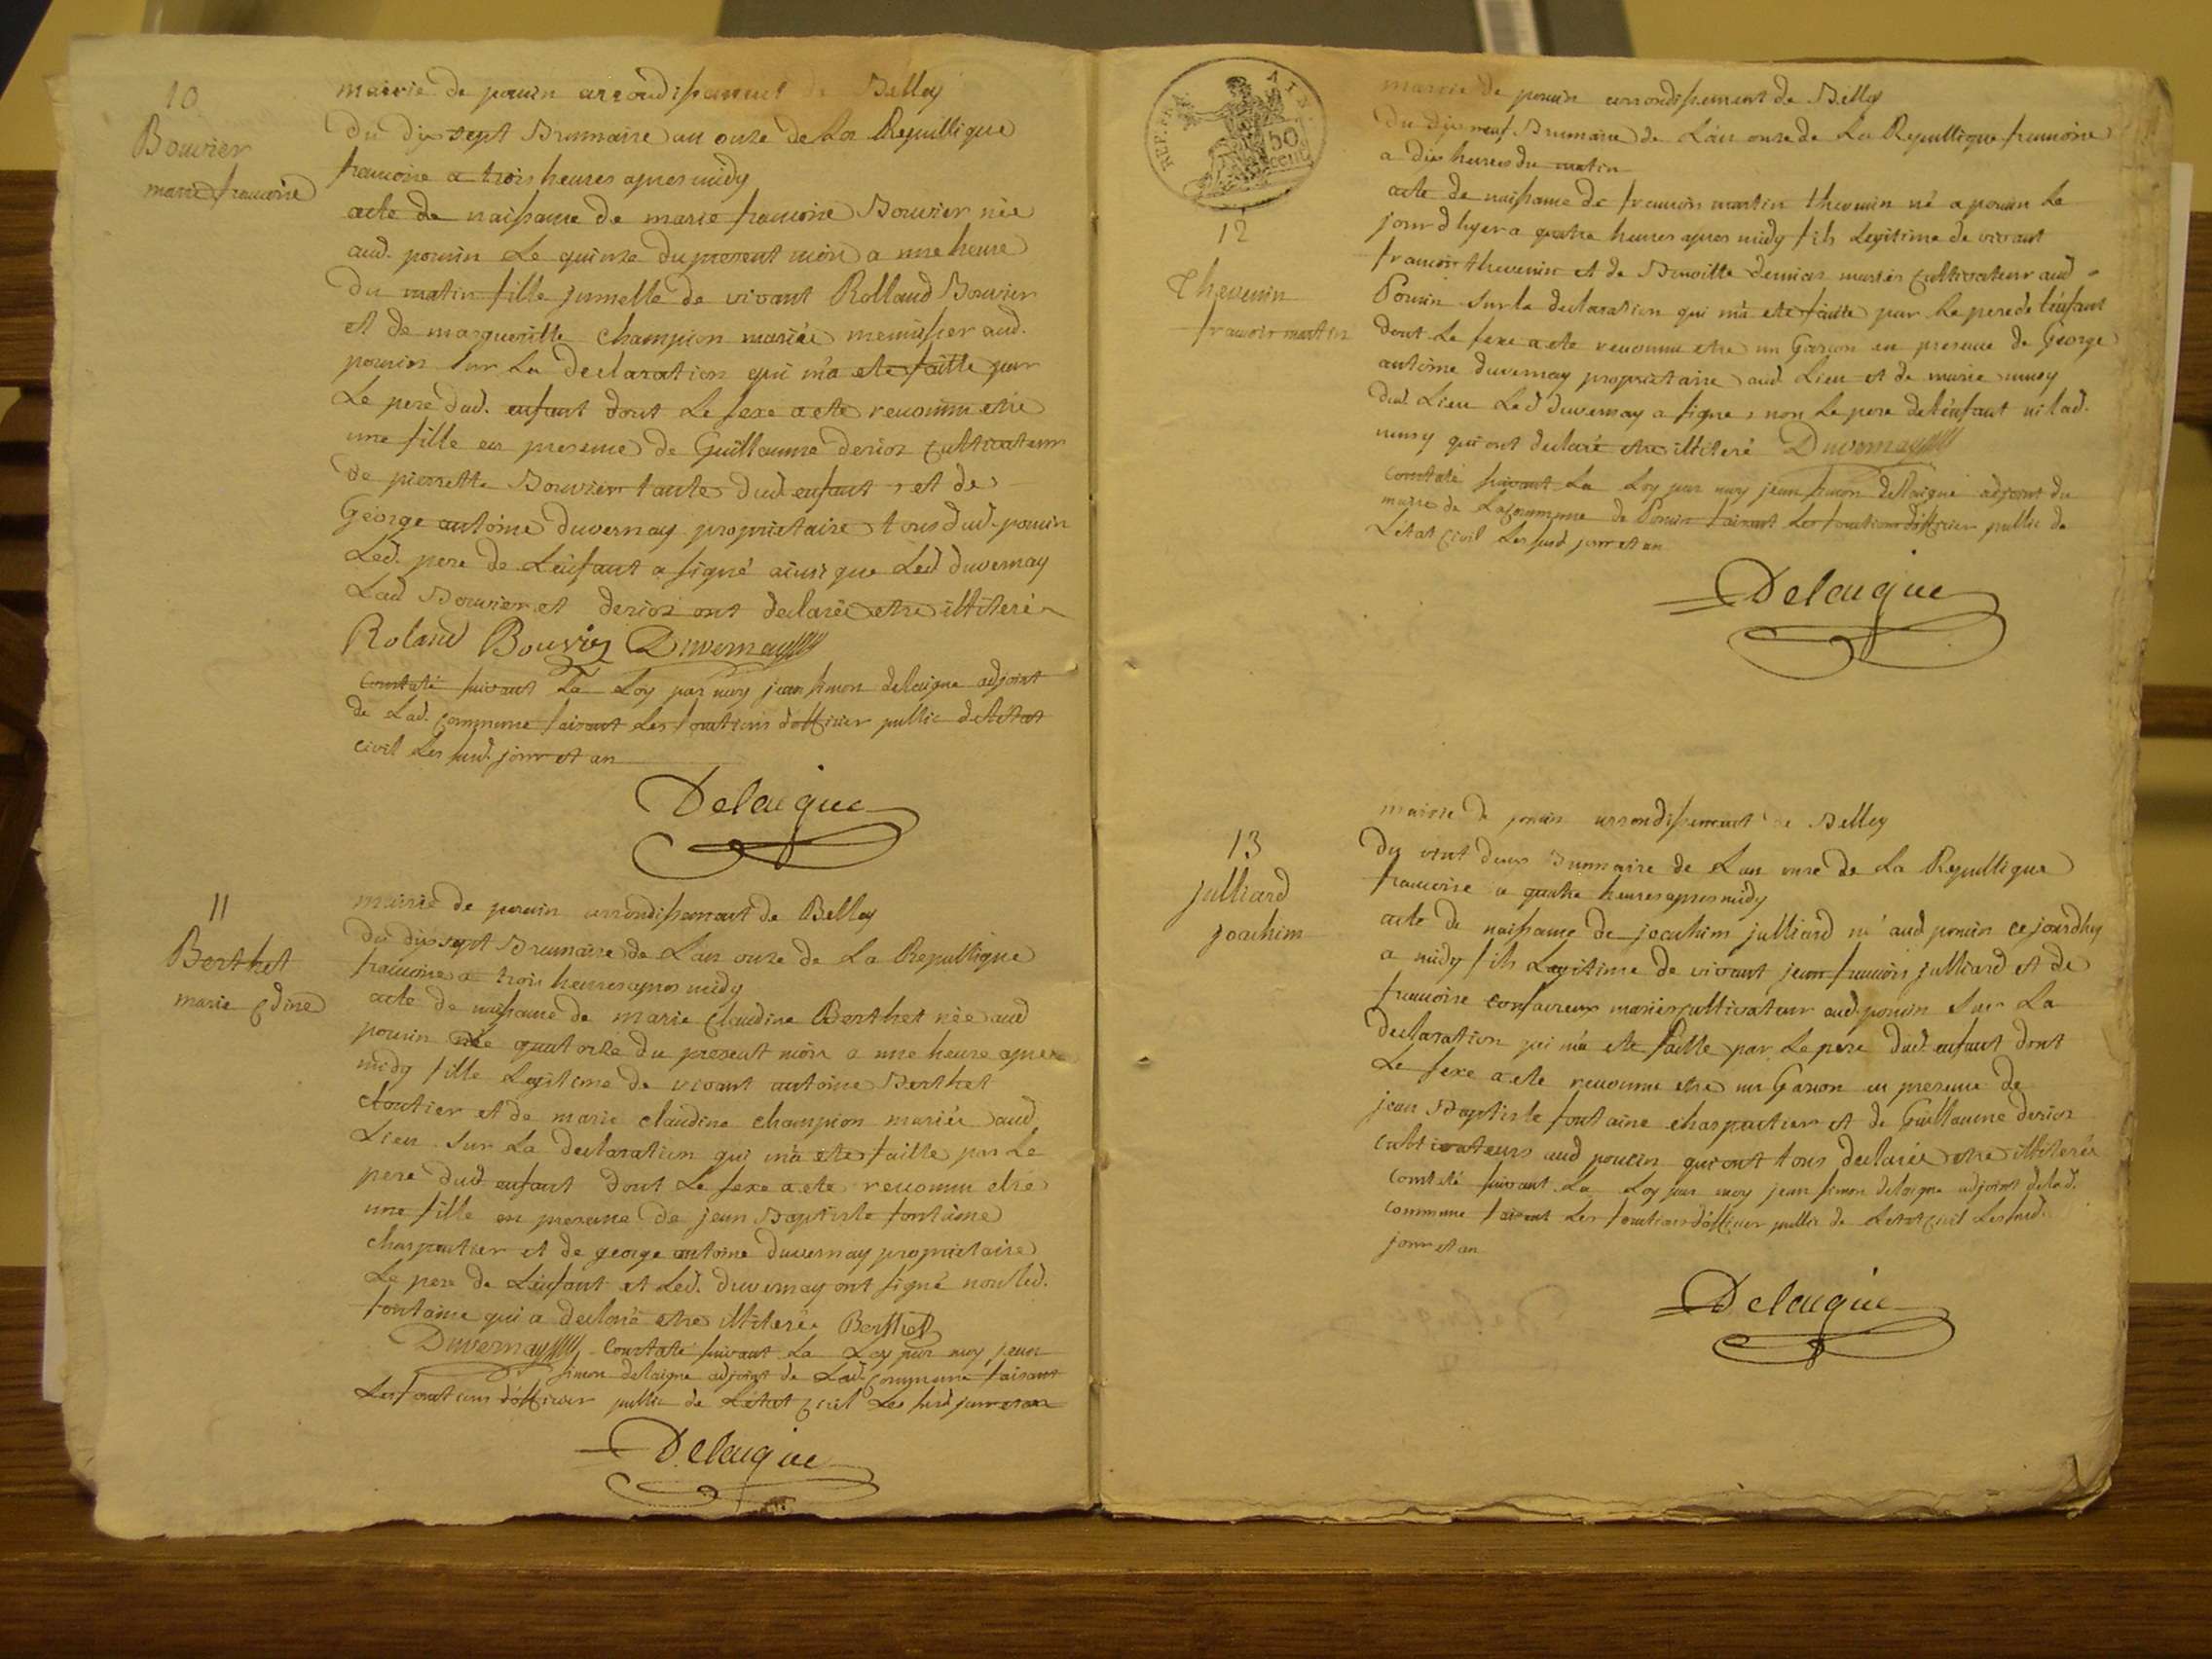 10
Bouvier
marie francoise
mairie de pouin arrondissement de Belley
du dix sept Brumaire an onze de La Republique
francoise a trois heures apres midy
acte de naissance de marie francoise Bouvier née
aud. pouin Le quinze du present mois a une heure
du matin fille jumelle de vivant Rolland Bouvier
et de margueritte Champion mariés menuisier aud.
pouin Sur La Declaration qui m'a ete faitte par
Le pere dud. enfant dont Le sexe a ete reconnu etre
une fille en presence de Guillaume derioz cultivateur
de pierrette Bouvier tante dud enfant, et de
George antoine duvernay proprietaire tous dud. pouin
Led. pere de L'enfant a signé ainsi que Led duvernay
Lad Bouvier et derioz ont declaré etre illiteré
Roland Bouvier Duvernay
Constaté suivant La Loy par moy jean simon delaigue adjoint
de Lad. Commune faisant Les fonctions d'officier public de Letat
civil Les susd. jour et an
Delaigue
11
Berthet
marie Cdine
mairie de pouin arrondissement de Belley
du dix sept Brumaire de L'an onze de La Republique
francoise a trois heures apres midy
acte de naissance de marie Claudine Berthet née aud
pouin Le quatorze du present mois a une heure apres
midy fille Legitime de vivant antoine Berthet
cloutier et de marie claudine champion mariés aud
Lieu Sur La declaration qui m'a ete faitte par Le
pere dud enfant dont Le sexe a ete reconnu etre
une fille en presence de jean Baptiste fontaine
charpentier et de george antoine duvernay proprietaire
Le pere de L'enfant et Led. duvernay ont signé non led.
fontaine qui a declaré etre illiteré Berthet
Duvernay Constaté suivant La Loy par moy jean
simon delaigue adjoint de Lad. Commune faisant
Les fonctions d'officier public de L'etat civil Les susd jour et an
Delaigue
REP. FRA. AIN.
50
cent.
12
Thevenin
francois martin
mairie de pouin arrondissement de Belley
du dix neuf Brumaire de L'an onze de La Republique francoise
a dix heures du matin
acte de naissance de francois martin thevenin né a pouin Le
jour d'hyer a quatre heures apres midy fils Legitime de vivant
francois thevenin et de Benoitte mariés cultivateur aud
Pouin Sur la declaration qui m'a ete faitte par Le pere de L'enfant
dont Le sexe a ete reconnu etre un Garcon en presence de George
antoine duvernay proprietaire aud. Lieu et de marie
dud. Lieu Led duvernay a signé, non Le pere de L'enfant ni lad.
qui ont declaré etre illiteré Duvernay
Constaté suivant La Loy par moy jean simon delaigue adjoint du
maire de La Commune de Pouin faisant Les fonctions d'officier public de
L'etat civil Les susd jour et an
Delaigue
13
julliard
joachim
mairie de pouin arrondissement de Belley
du vint deux Brumaire de L'an onze de La Republique
francoise a quatre heures apres midy
acte de naissance de joachim julliard né aud pouin ce jourdhuy
a midy fils Legitime de vivant jean francois julliard et de
francoise mariés cultivateur aud. pouin Sur La
declaration qui m'a ete faitte par Le pere dud. enfant dont
Le sexe a ete reconnu etre un Garcon en presence de
jean Baptiste fontaine charpentier et de Guillaume derioz
cultivateurs aud pouin qui ont tous declaré etre illiterés
Constaté suivant La Loy par moy jean simon delaigue adjoint de lad.
Commune faisant Les fonctions d'officier public de Letat civil Les susd.
jour et an
Delaigue